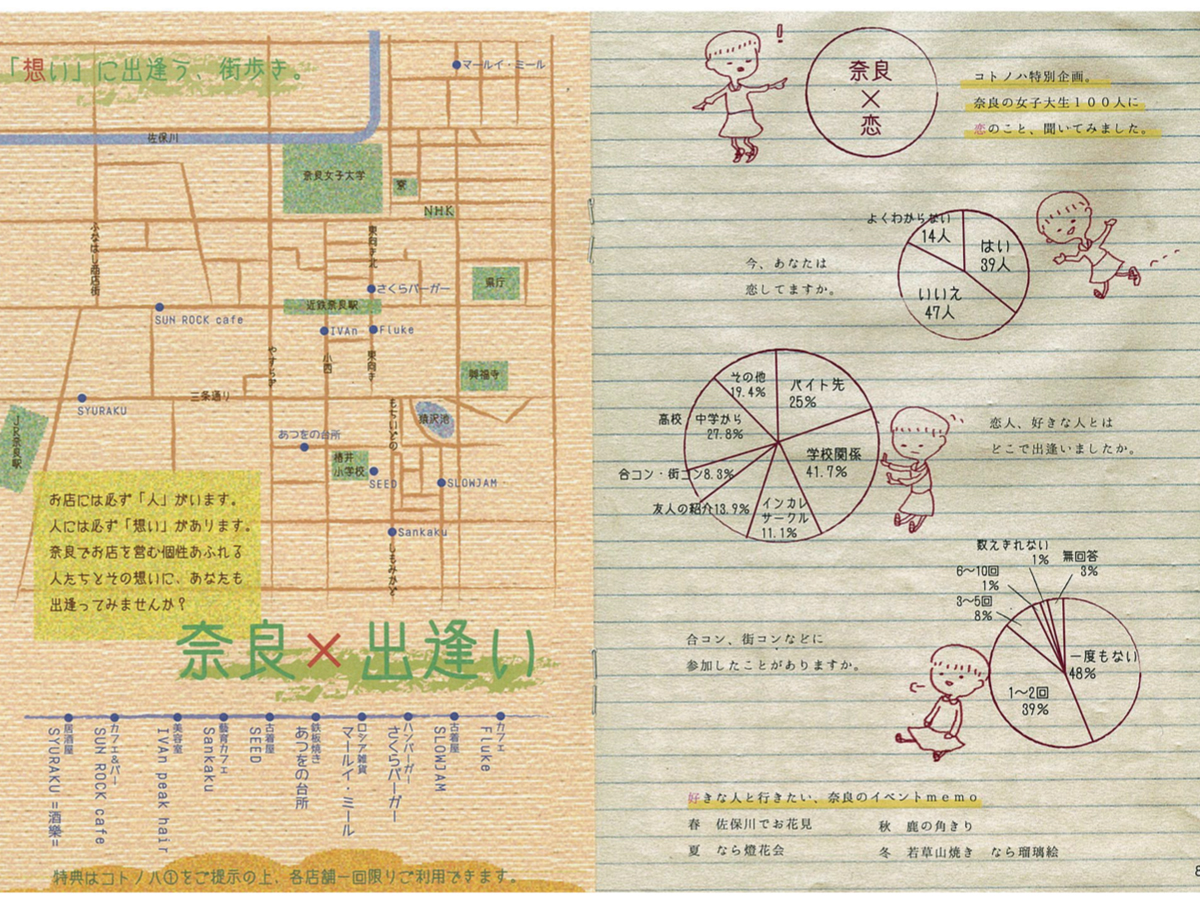 「想い」に出逢う、街歩き。
マールイ・ミール
佐保川
奈良女子大学
寮
NHK
東向き北
県庁
さくらバーガー
近鉄奈良駅
SUN ROCK cafe
IVAn
Fluke
やすらぎ
小西
東向き
興福寺
三条通り
SYURAKU
もちいどの
猿沢池
JR奈良駅
あつをの台所
椿井
小学校
SEED
SLOWJAM
Sankaku
しもみかど
お店には必ず「人」がいます。
人には必ず「想い」があります。
奈良でお店を営む個性あふれる
人たちとその想いに、あなたも
出逢ってみませんか？
奈良×出逢い
居酒屋
SYURAKU =酒樂=
カフェ&バー
SUN ROCK cafe
美容室
IVAn peak hair
藝育カフェ
Sankaku
古着屋
SEED
鉄板焼き
あつをの台所
ロシア雑貨
マールイ・ミール
ハンバーガー
さくらバーガー
古着屋
SLOWJAM
カフェ
Fluke
特典はコトノハ①をご提示の上、各店舗一回限りご利用できます。
奈良
×
恋
コトノハ特別企画。
奈良の女子大生１００人に
恋のこと、聞いてみました。
今、あなたは
恋してますか。
よくわからない
14人
はい
39人
いいえ
47人
恋人、好きな人とは
どこで出逢いましたか。
その他
19.4%
バイト先
25%
高校 中学から
27.8%
学校関係
41.7%
合コン・街コン8.3%
友人の紹介13.9%
インカレ
サークル
11.1%
合コン、街コンなどに
参加したことがありますか。
数えきれない
1%
無回答
3%
6〜10回
1%
3〜5回
8%
一度もない
48%
1〜2回
39%
好きな人と行きたい、奈良のイベントmemo
春 佐保川でお花見
秋 鹿の角きり
夏 なら燈花会
冬 若草山焼き なら瑠璃絵
8